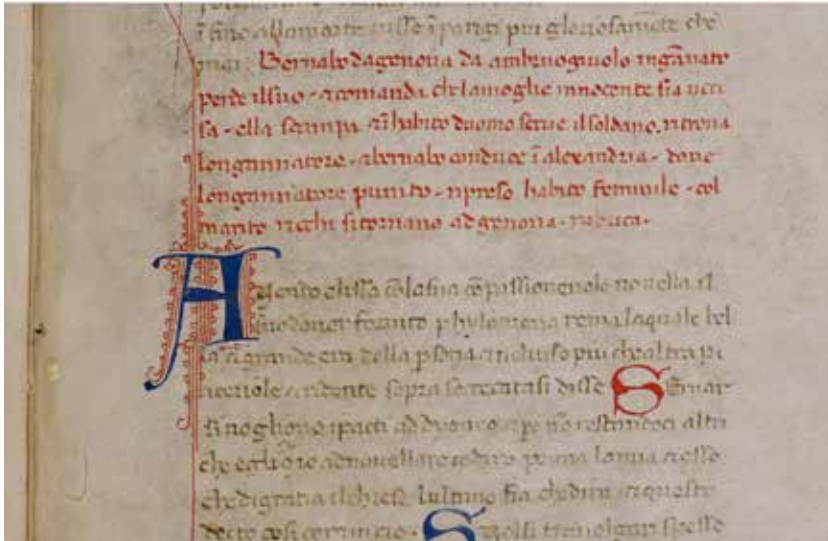 ĩ fino alla morte visse ĩ parigi piu gloriosamẽte che
mai. Bernabo dagenova da ambruogiuolo ingãnato
perde ilsuo · ⁊ comanda chelamoglie innocente sia ucci
sa · ella scampa ⁊ ĩ habito duomo serve ilsoldano. ritrova
longannatore · ⁊ bernabo conduce ĩ alexandria · dove
longannatore punito · ripreso habito feminile · col
marito ricchi sitornano ad genova · rubrica ·
Avendo elissa cõ lasua cõpassionevole novella il
suo dover fornito phylomena reina laquale bel
la ⁊ grande era della psona ⁊ nelviso piu chealtra pi
acevole ⁊ ridente sopra se recatasi disse Servar
si voglono ipacti ad dyoneo ⁊ pe nõ restandoci altri
che egli ⁊ io ad novellare io diro prima la mia ⁊ esso
che digratia ilchiese lultimo fia chedira ⁊ questo
decto cosi comincio · Suolsi tra volgari spesse